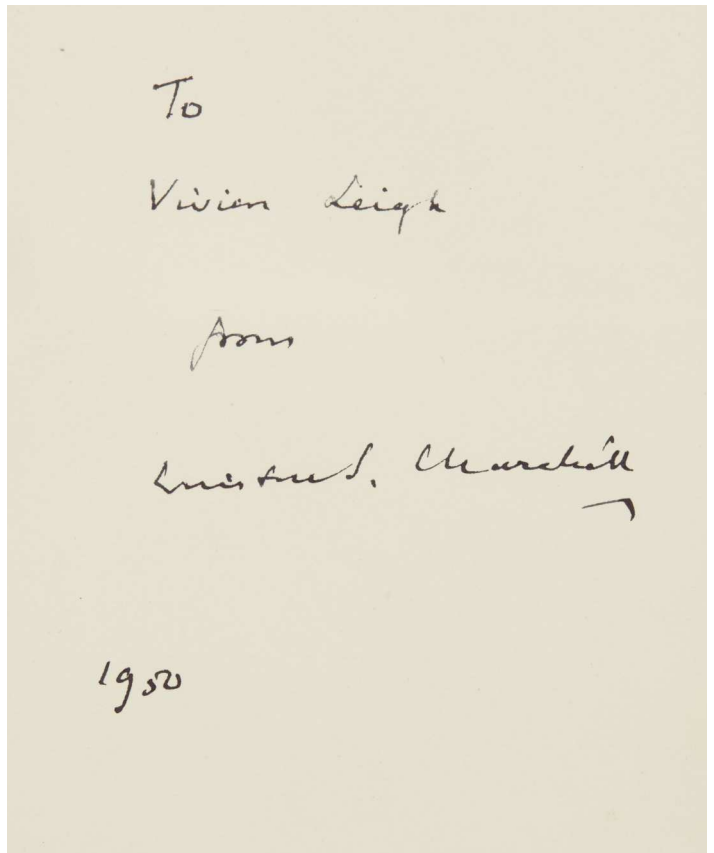 To
Vivien Leigh
from
Winston S. Churchill
1950